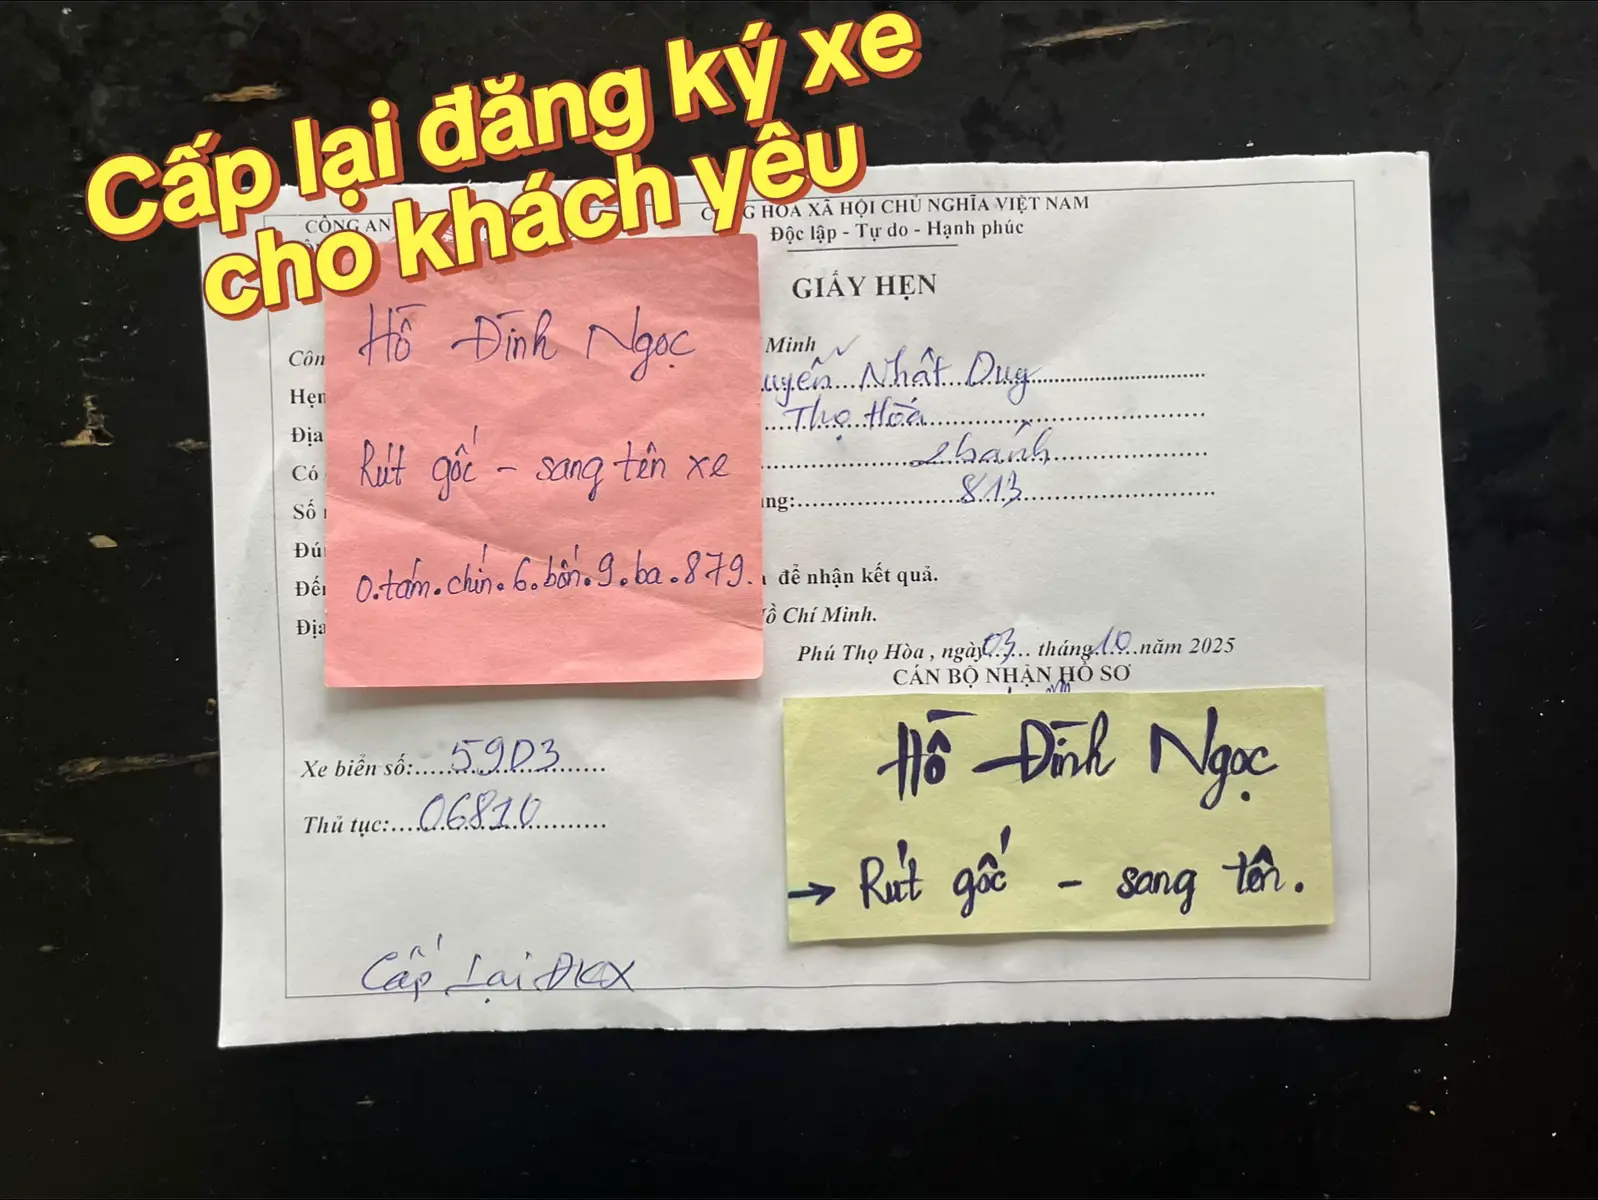 Cấp lại đăng ký xe
cho khách yêu
CÔNG AN
CỘNG HÒA XÃ HỘI CHỦ NGHĨA VIỆT NAM
Độc lập - Tự do - Hạnh phúc
GIẤY HẸN
Hồ Đình Ngọc
Rút gốc - sang tên xe
0.tám.chín.6.bốn.9.ba.879.
Minh
Hẹn
uyễn Nhật Duy
Địa
Thọ Hòa
Có
khánh
Số
ng: 813
Đến
để nhận kết quả.
Địa
Hồ Chí Minh.
Phú Thọ Hòa , ngày 03 tháng 10 năm 2025
CÁN BỘ NHẬN HỒ SƠ
Xe biển số: 59D3
Thủ tục: 06810
Hồ Đình Ngọc
→ Rút gốc - sang tên.
Cấp Lại ĐKX